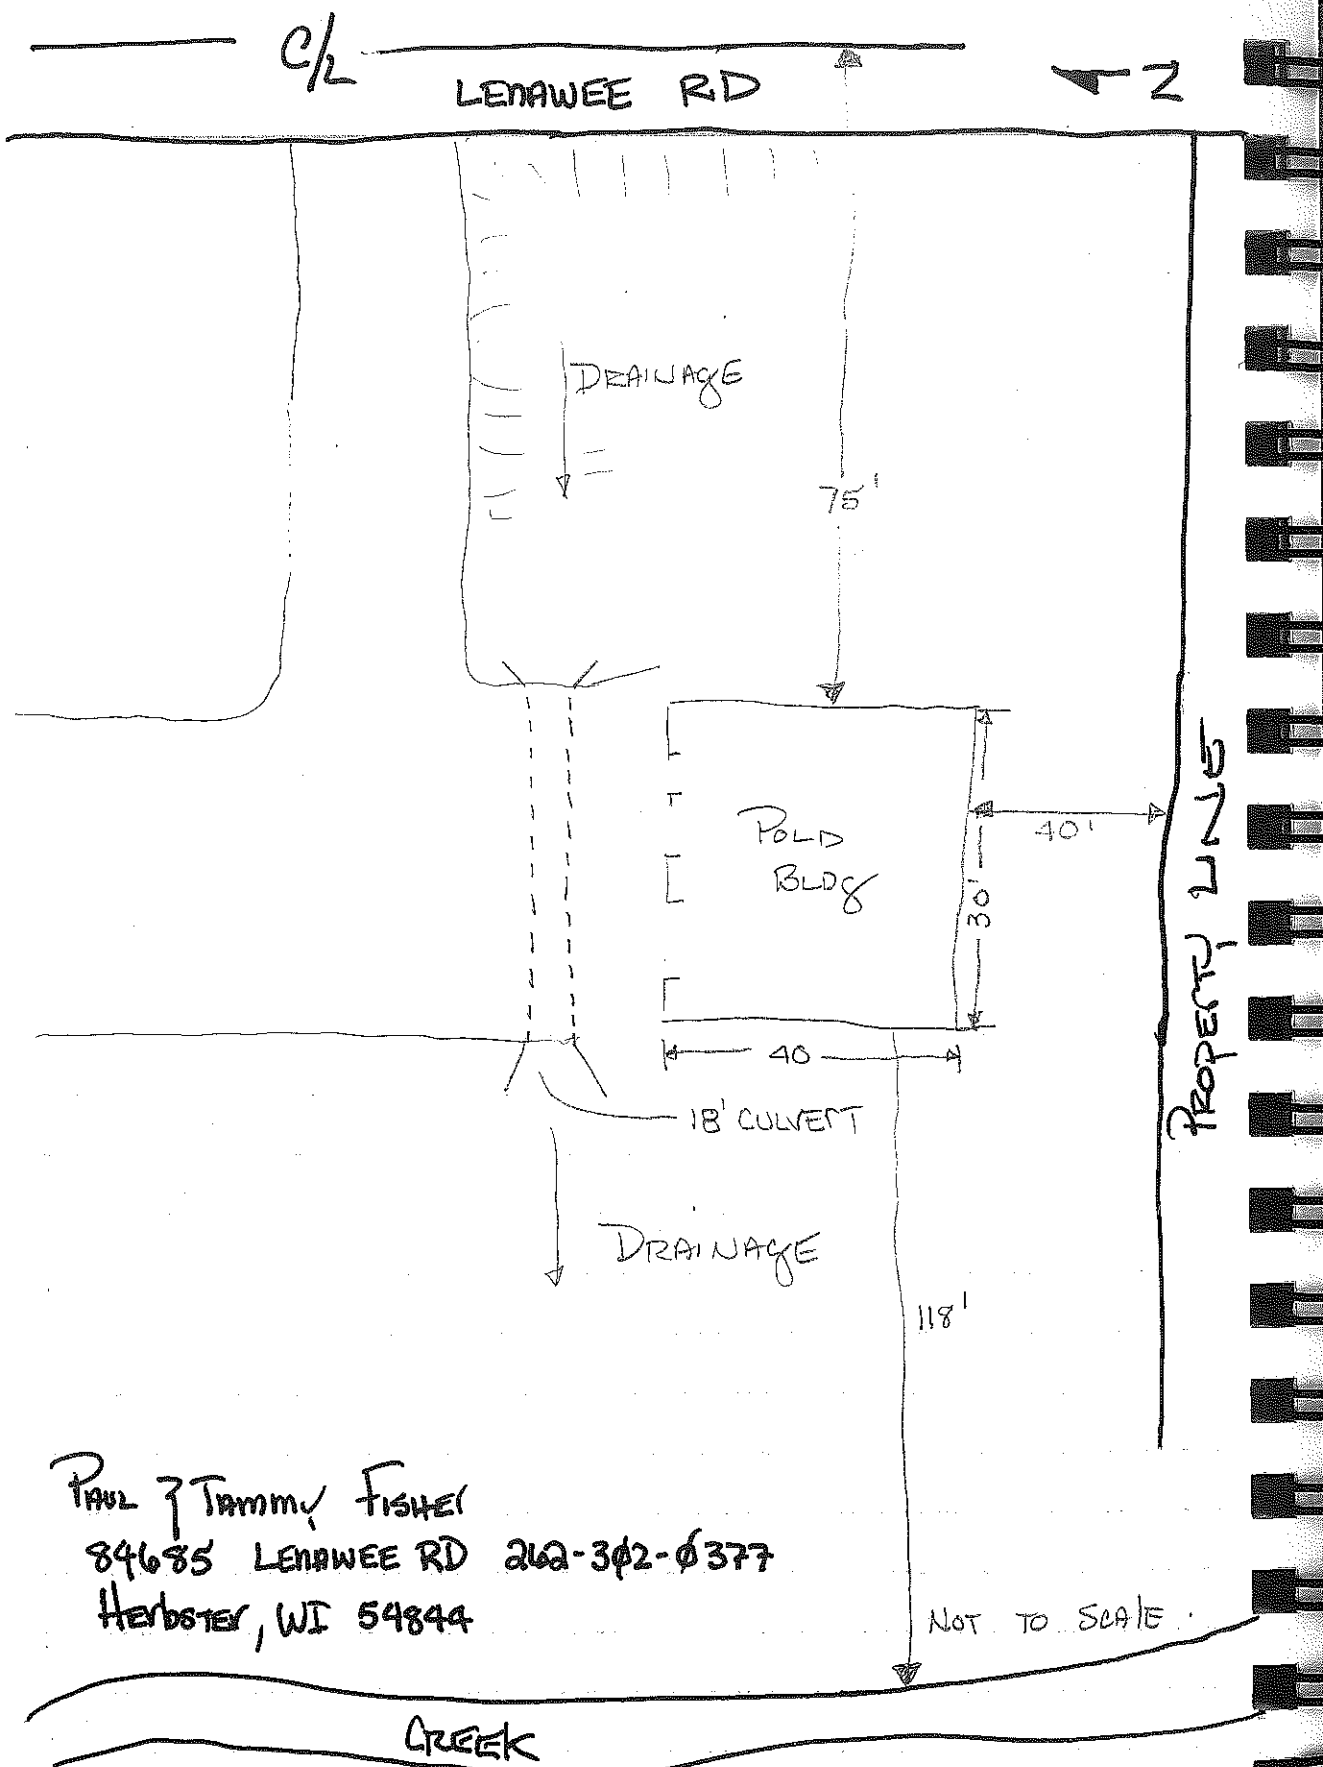 C/L
LENAWEE RD
N
DRAINAGE
75'
POLD
BLDG
40'
30'
PROPERTY LINE
40
18' CULVERT
DRAINAGE
118'
PAUL & TAMMY FISHER
84685 LENAWEE RD 262-302-0377
HERBSTER, WI 54844
NOT TO SCALE.
CREEK